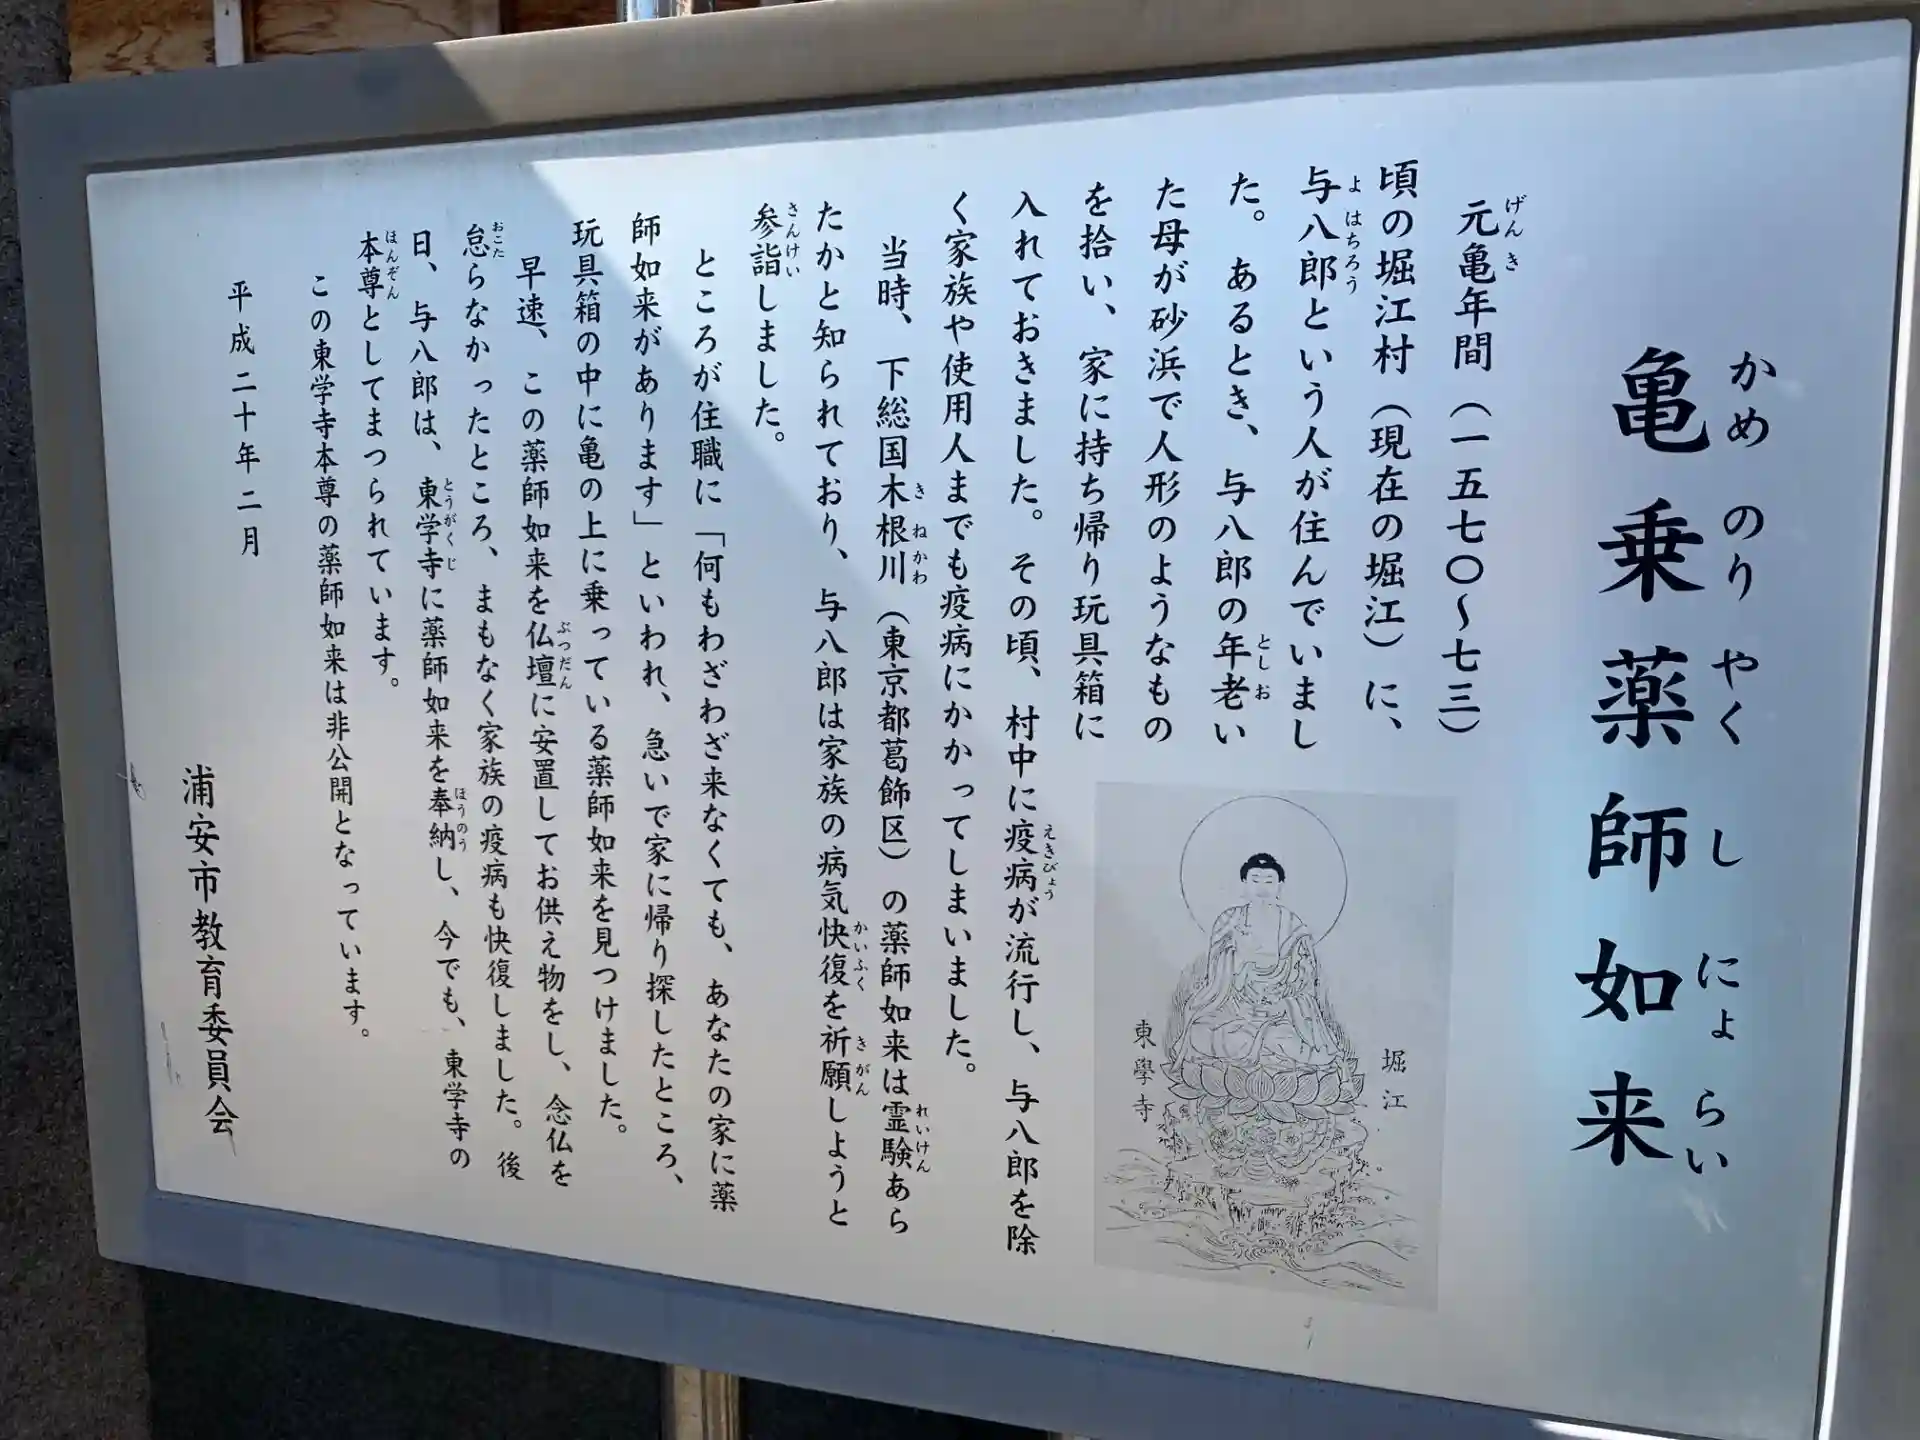 亀乗薬師如来
かめのりやくしにょらい
元亀年間（一五七〇～七三）
げんき
頃の堀江村（現在の堀江）に、
与八郎という人が住んでいまし
よはちろう
た。あるとき、与八郎の年老い
としお
た母が砂浜で人形のようなもの
を拾い、家に持ち帰り玩具箱に
入れておきました。その頃、村中に疫病が流行し、与八郎を除
えきびょう
く家族や使用人までも疫病にかかってしまいました。
当時、下総国木根川（東京都葛飾区）の薬師如来は霊験あら
きねかわ
れいけん
たかと知られており、与八郎は家族の病気快復を祈願しようと
かいふく
きがん
参詣しました。
さんけい
ところが住職に「何もわざわざ来なくても、あなたの家に薬
師如来があります」といわれ、急いで家に帰り探したところ、
玩具箱の中に亀の上に乗っている薬師如来を見つけました。
早速、この薬師如来を仏壇に安置してお供え物をし、念仏を
ぶつだん
怠らなかったところ、まもなく家族の疫病も快復しました。後
おこた
日、与八郎は、東学寺に薬師如来を奉納し、今でも、東学寺の
とうがくじ
ほうのう
本尊としてまつられています。
ほんぞん
この東学寺本尊の薬師如来は非公開となっています。
平成二十年二月
浦安市教育委員会
堀江
東學寺